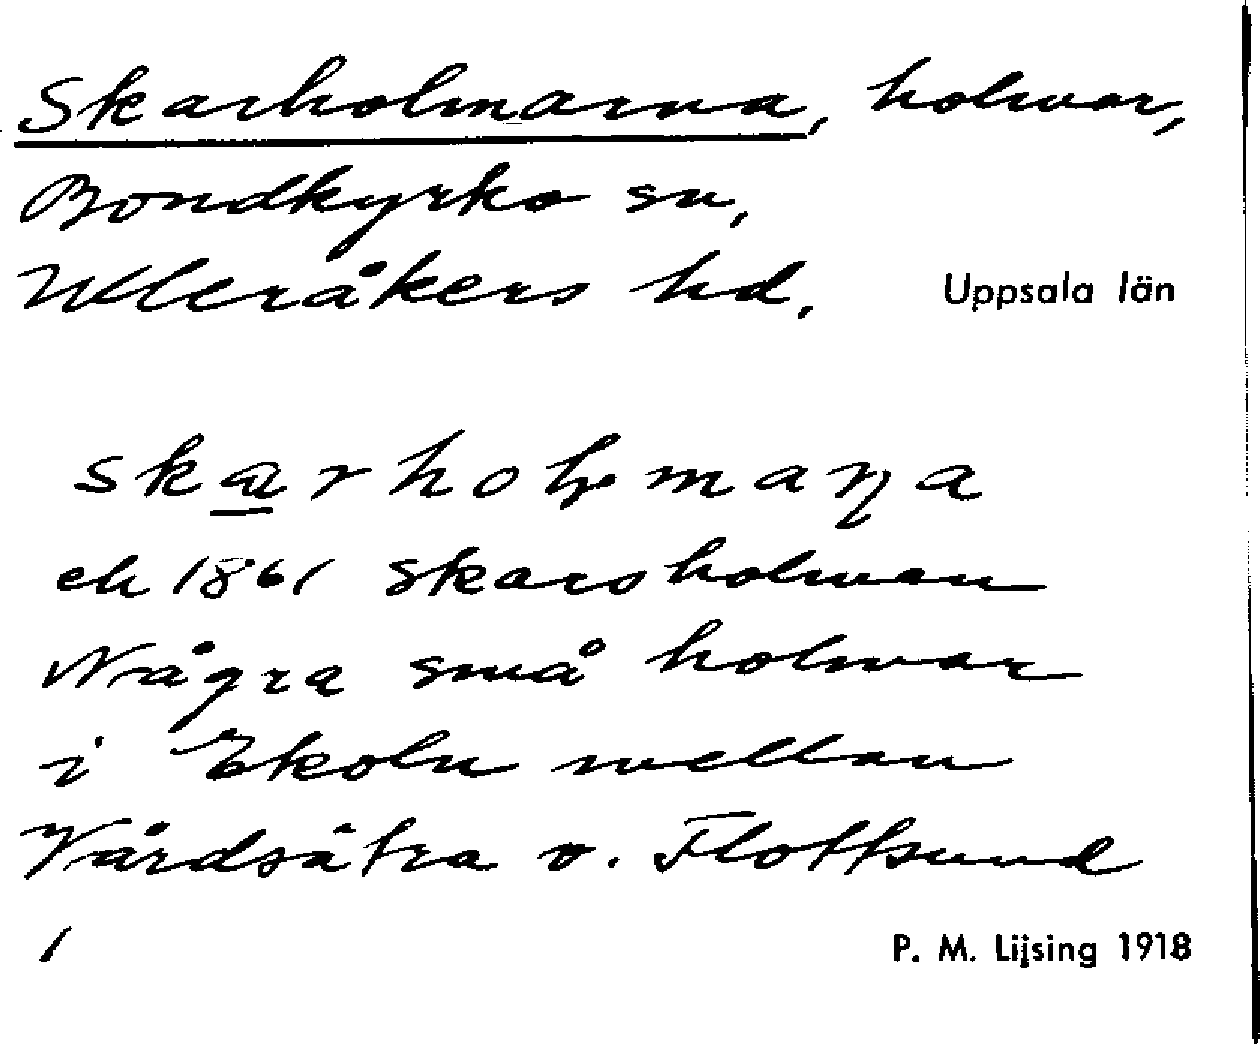 Skarholmarna, holmar,
Bondkyrko sn,
Ulleråkers hd, Uppsala län
skarholmaɳa
ek 1861 Skarsholmen
Några små holmar
i Ekoln mellan
Vårdsätra o. Flottsund
1 P. M. Lijsing 1918